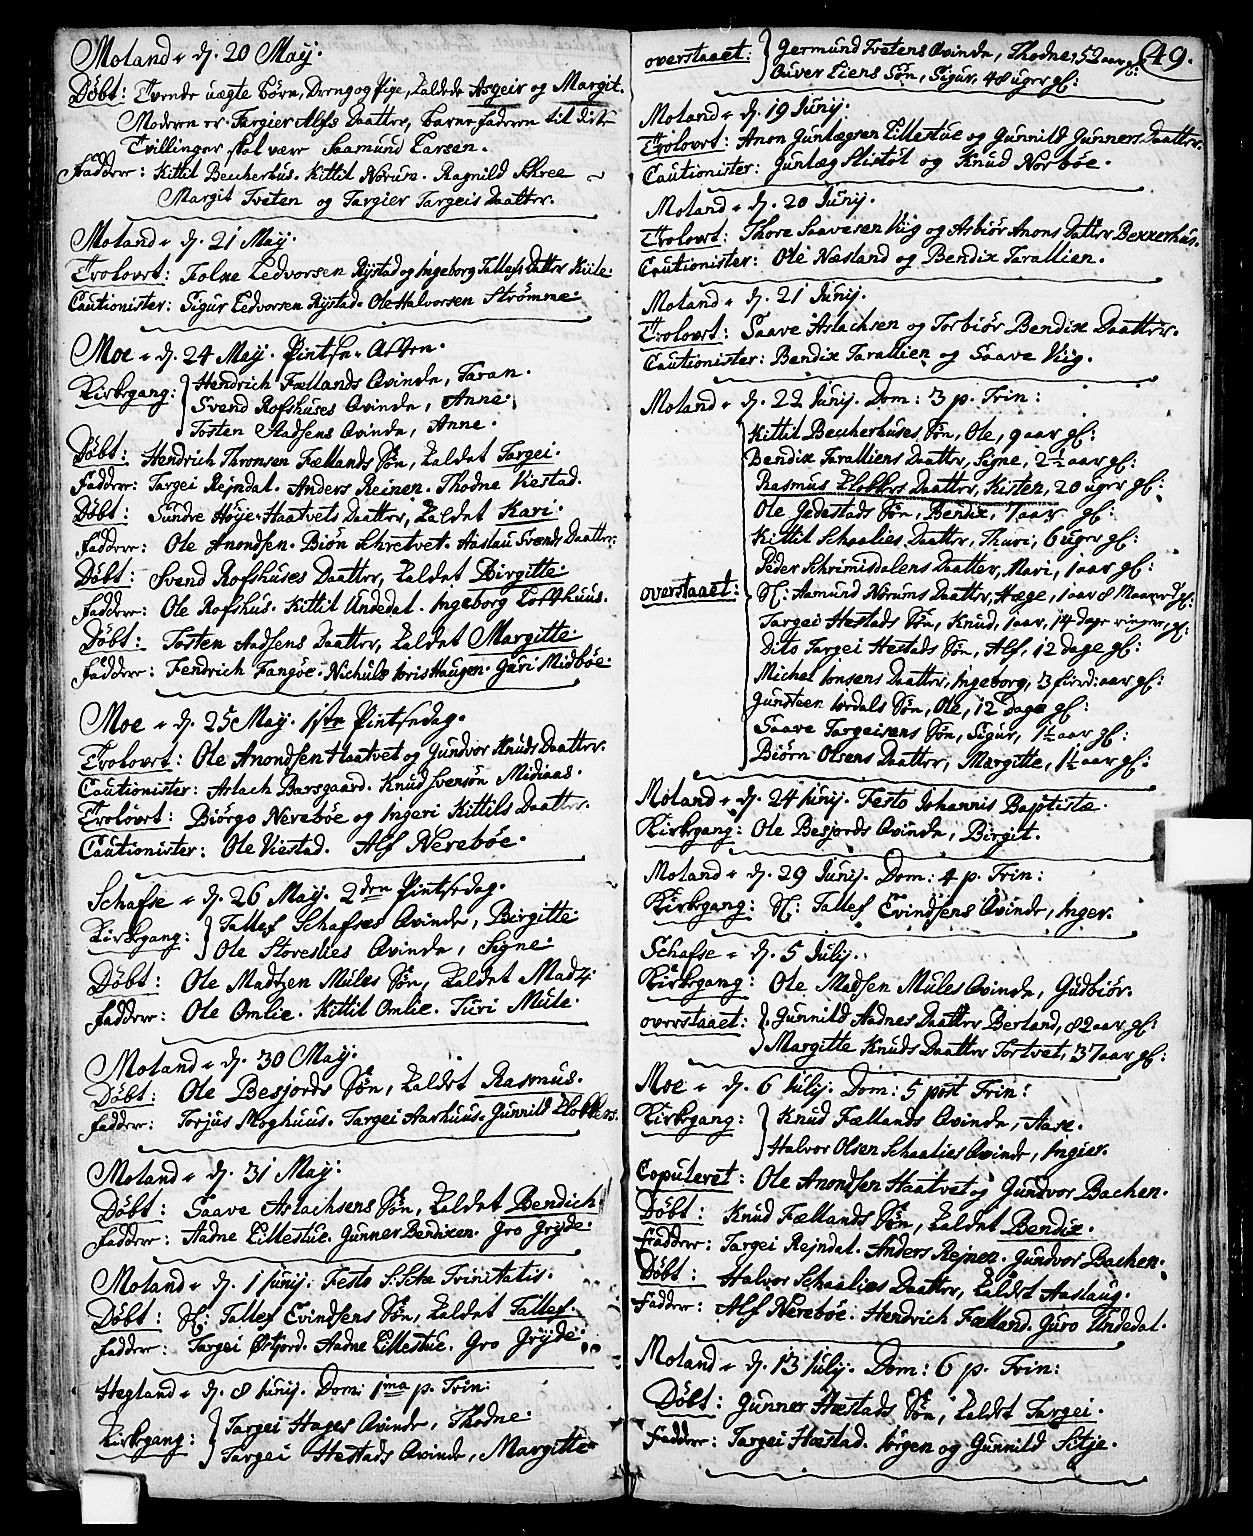 Moland d. 20 May.
Döbt: Tvende uægte Börn, Dreng og Pige, kaldede Asgeir og Margit.
Moderen er Targier Alfs Daatter, barnefaderen til diße
Tvillinger skal være Saamund Larsen.
Faddere: Kittil Beucherhus. Kittil Noruse. Ragnild Skree
Margit Tveten og Targier Targeis Daatter.
Moland d. 21 May.
Trolovet: Folke Ledvorsen Rystad og Ingeborg Tallefs Datter Kiile.
Cautionister: Sigur Ledvorsen Rystad. Ole Halvorsen Strömne.
Moe d. 24 May. Pintse-Aften.
Kirkgang: Hendrich Fællands Qvinde, Taran.
Svend Rofshuses Qvinde, Anne.
Tosten Aadsens Qvinde, Anne.
Döbt: Hendrich Thronsen Fællands Sön, kaldet Targei.
Faddere: Targei Rejndal. Anders Reinen. Thodne Viestad.
Döbt: Sundre Höye-Haatvets Daatter, kaldet Kari.
Faddere: Ole Anondsen. Biön Schretvet. Aaslau Svends Daatter.
Döbt: Svend Rofshuses Daatter, kaldet Birgitte.
Faddere: Ole Rofshus. Kittil Undedal. Ingeborg Rofshuus.
Döbt: Tosten Aadsens Daatter, kaldet Margitte.
Faddere: Fendrich Fangöe. Nichuls Joris Haugen. Guri Midböe.
Moe d. 25 May. 1ste Pintsedag.
Trolovet: Ole Anondsen Haatvet og Gundvor Knuds Daatter.
Cautionister: Aslach Barsgaard. Knud Svensön Midiaas.
Trolovet: Biörgo Nereböe og Ingeri Kittils Daatter.
Cautionister: Ole Viestad. Alf Nereböe.
Schafse d. 26 May. 2den Pintsedag.
Kirkgang: Tallef Schafses Qvinde, Birgitte.
Ole Storeslies Qvinde, Signe.
Döbt: Ole Madtzen Mules Sön, kaldet Mads.
Faddere: Ole Omlie. Kittil Omlie. Turi Mule.
Moland d. 30 May.
Döbt: Ole Besjords Sön, kaldet Rasmus.
Faddere: Torjus Moghuus. Targei Aarhuus. Gunnild Klokkers.
Moland d. 31 May.
Döbt: Saave Aslachsens Sön, kaldet Bendich
Faddere: Aadne Lillestue. Gunner Bendixen. Gro Gryde.
Moland d. 1 Junij. Festo S:Sctæ Trinitatis.
Döbt: Sl: Tallef Evindsens Sön, kaldet Tallef.
Faddere: Targei Östjord. Aadne Lillestue. Gro Gryde.
Hegland d. 8 Junij. Dom: 1ma p. Trin:
Kirkgang: Targei Hages Qvinde, Thodne.
Targei Hestads Qvinde, Margitte.
49.
overstaaet: Germund Tvetens Qvinde, Thodne, 52 aar gl:
Ouver Liens Sön, Sigur, 48 uger gl:
Moland d. 19 Junij.
Trolovet: Anon Gunlægsen Lillestue og Gunnild Gunners Daatter.
Cautionister: Gunlæg Slistöl og Knud Norböe.
Moland d. 20 Junij.
Trolovet: Thore Saavesen Viig og Asbiör Anons Datter Bekkerhus.
Cautionister: Ole Næsland og Bendix Tarallien.
Moland d. 21 Junij.
Trolovet: Saave Aslachsen og Torbiör Bendix Daatter.
Cautionister: Bendix Tarallien og Saave Viig.
Moland d. 22 Junij. Dom: 3 p. Trin:
overstaaet: Kittil Beucherhuses Sön, Ole, 9 aar gl:
Bendix Taralliens Daatter, Signe, 2½ aar gl:
Rasmus Klokkers Daatter, Kisten, 20 uger gl:
Ole Gedestads Sön, Bendix, 7 aar gl:
Kittil Schaalies Daatter, Thuri, 6 uger gl:
Peder Schrimisdalens Daatter, Mari, 1 aar gl:
Sl: Aamund Norums Daatter, Hæge, 1 aar 8 Maaneder gl:
Targei Hestads Sön, Knud, 1 aar, 14 dage ringer, gl:
Dito Targei Hestads Sön, Alf, 12 dage gl:
Michel Jonsens Daatter, Ingeborg, 3 fierd: aar gl:
Gunsteen Jordals Sön, Ole, 12 dage gl:
Saave Targeisens Sön, Sigur, 1½ aar gl:
Biörn Olsens Daatter, Margitte, 1½ aar gl:
Moland d. 24 Junij. Festo Johannis Baptistæ.
Kirkgang: Ole Besjords Qvinde, Birgit.
Moland d. 29 Junij. Dom: 4 p. Trin:
Kirkgang: Sl: Tallef Evindsens Qvinde, Inger.
Schafse d. 5 Julij.
Kirkgang: Ole Madsen Mules Qvinde, Gudbiör.
overstaaet: Gunnild Aadnes Daatter Berland, 82 aar gl:
Margitte Knuds Daatter Tortvet, 37 aar gl:
Moe d. 6 Julij. Dom: 5 post Trin:
Kirkgang: Knud Fællands Qvinde, Aase.
Halvor Olsen Schaalies Qvinde, Ingier.
Copuleret: Ole Anondsen Haatvet og Gundvor Bachen.
Döbt: Knud Fællands Sön, kaldet Bendix.
Faddere: Targei Rejndal. Anders Rejnen. Gundvor Bachen.
Döbt: Halvor Schaalies Daatter, kaldet Aaslaug.
Faddere: Alf Nereböe. Hendrich Fælland. Guro Undedal.
Moland d. 13 Julij. Dom: 6 p. Trin:
Döbt: Gunner Hæstads Sön, kaldet Targei.
Faddere: Targei Hæstad. Jörgen og Gunnild Sitje.